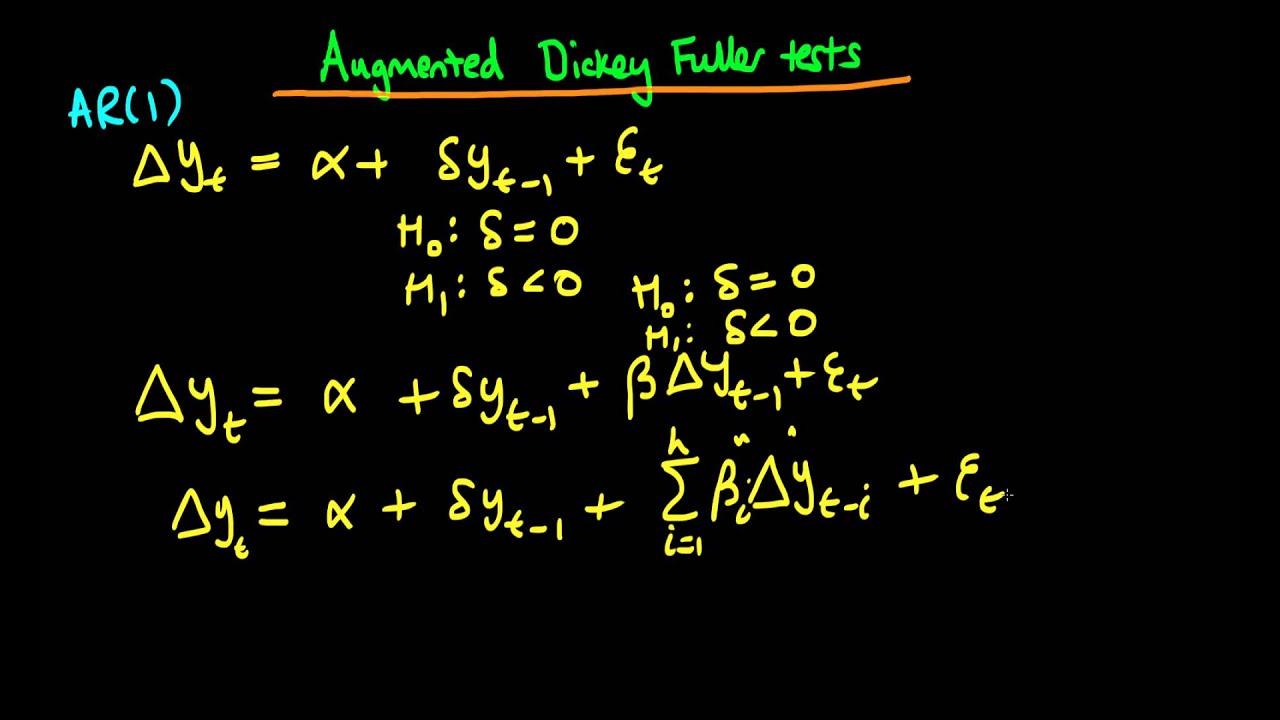 Augmented Dickey Fuller tests
AR(1)
Δyₜ = α + δyₜ₋₁ + εₜ
H₀: δ = 0
H₁: δ < 0
H₀: δ = 0
H₁: δ < 0
Δyₜ = α + δyₜ₋₁ + βΔyₜ₋₁ + εₜ
Δyₜ = α + δyₜ₋₁ + ∑ᵢ₌₁ʰ βᵢΔyₜ₋ᵢ + εₜ